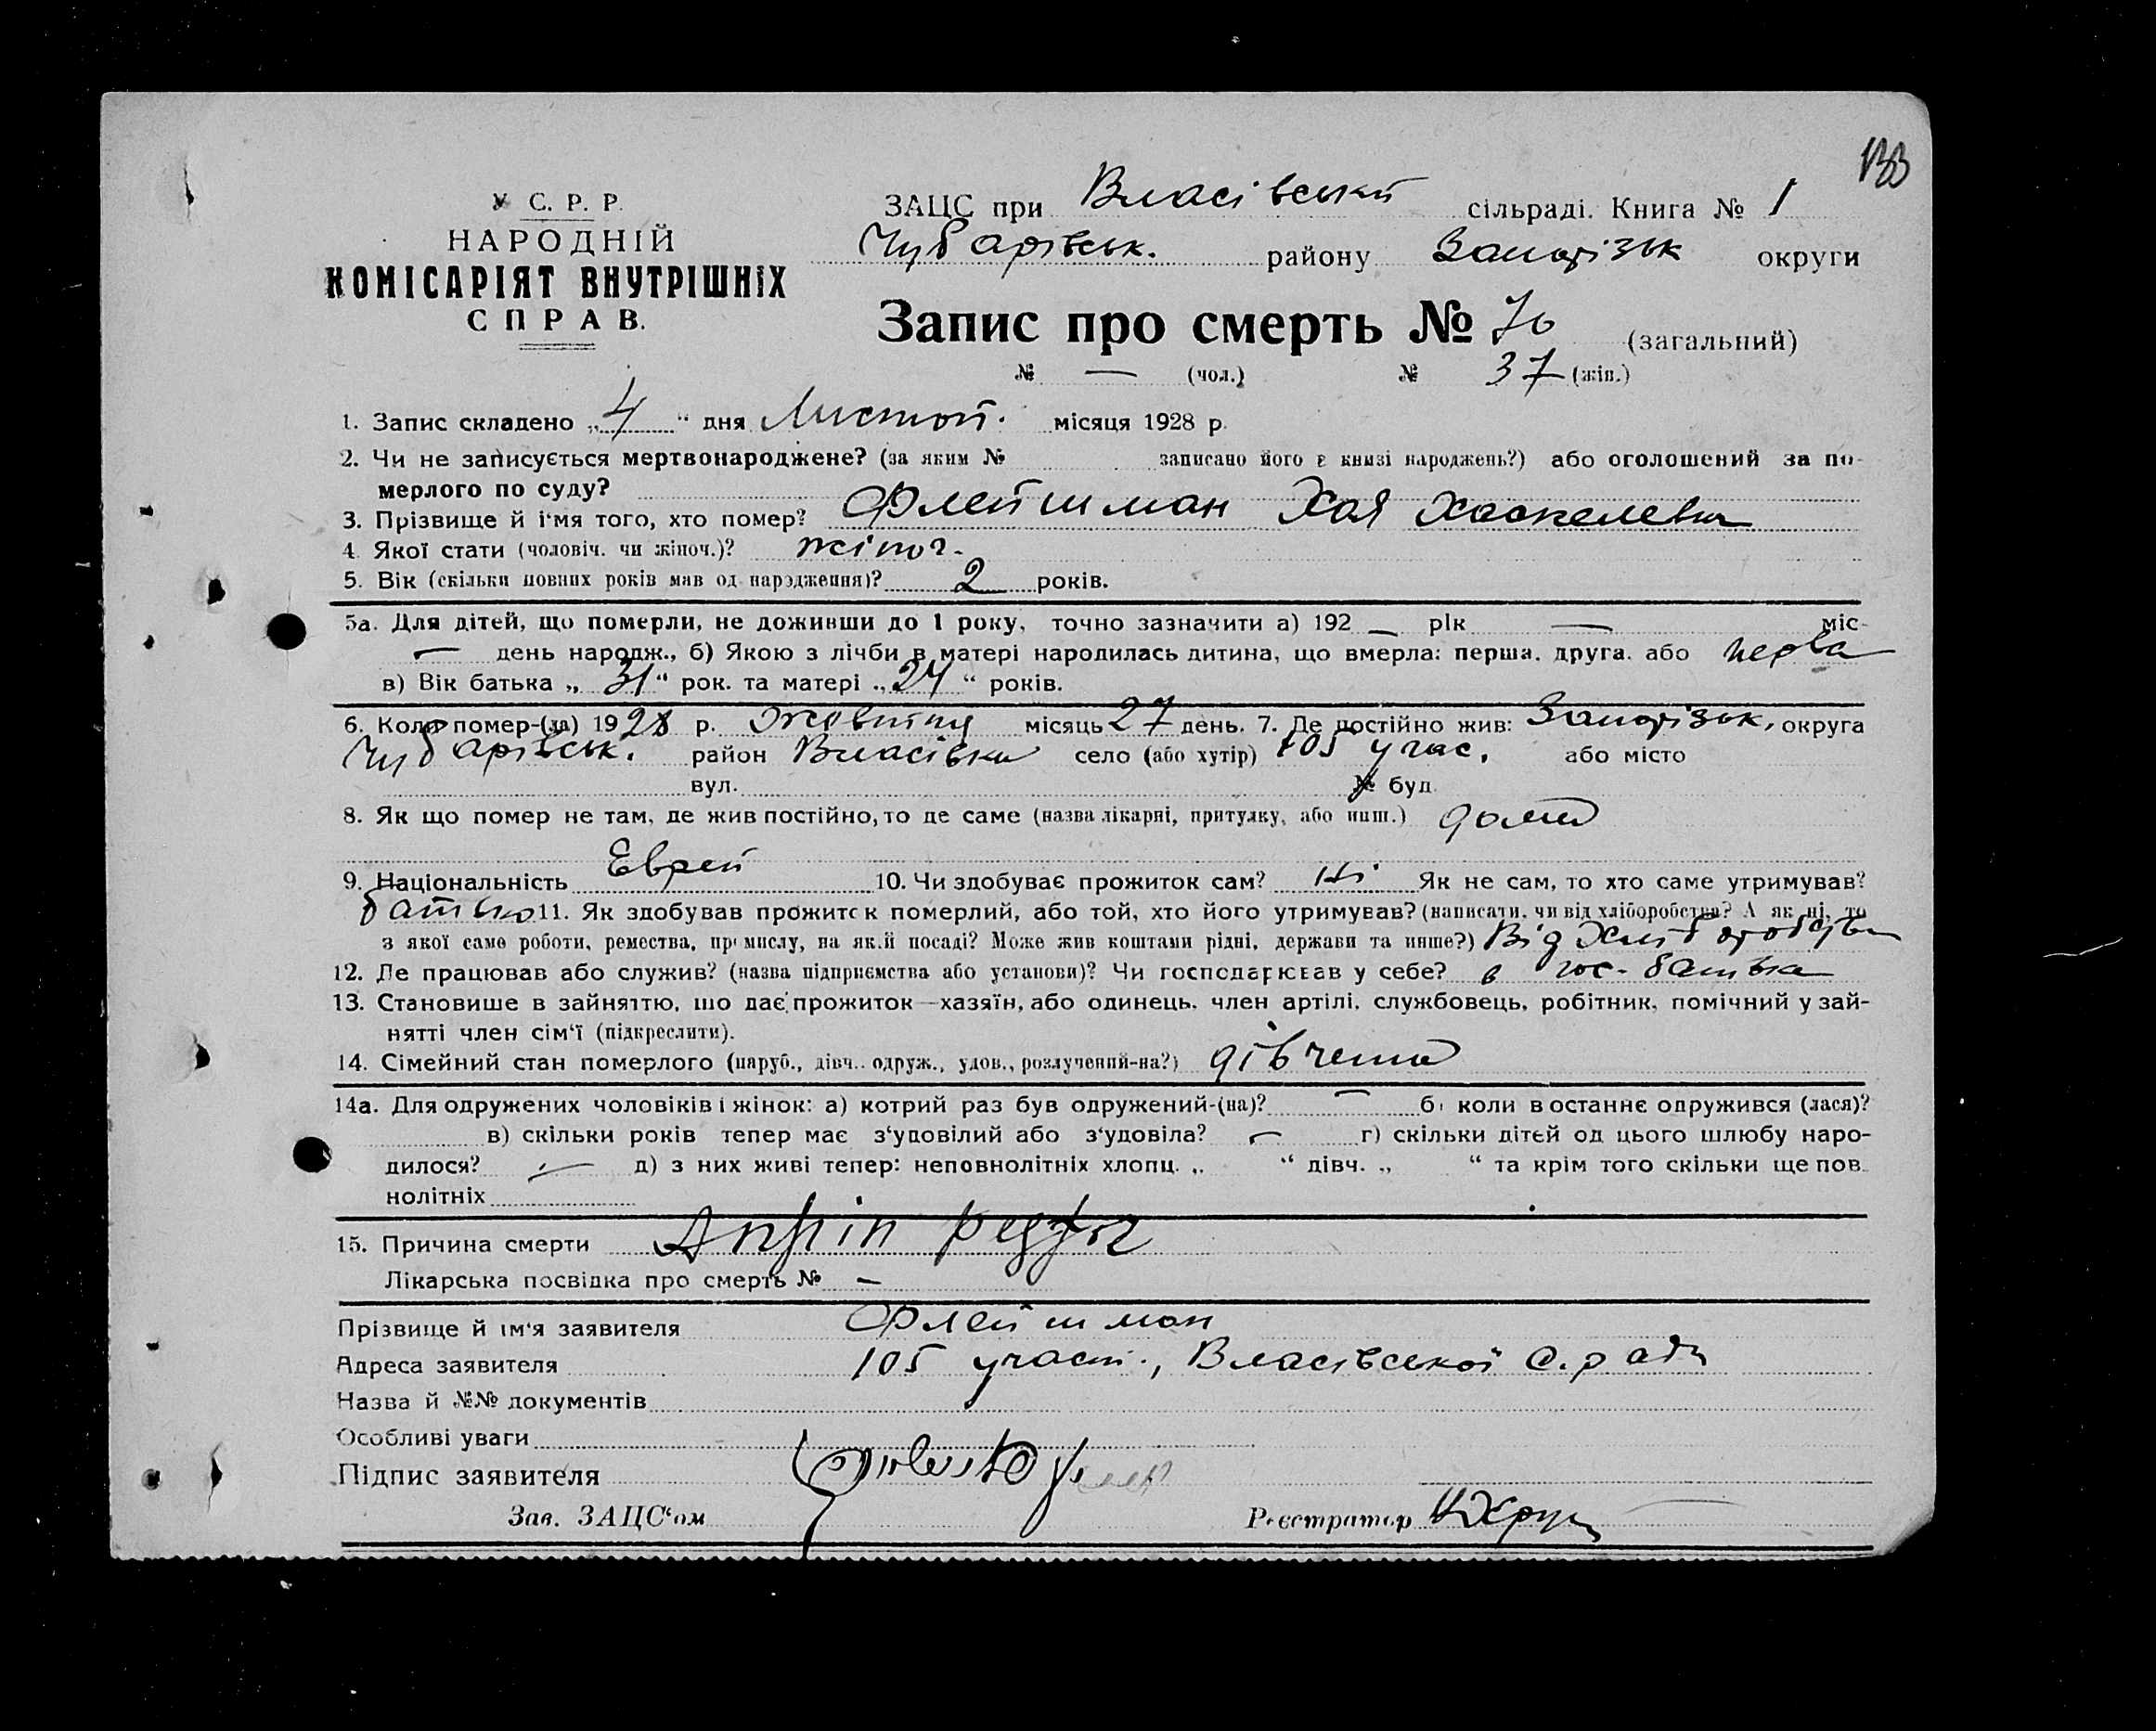 133
У. С. Р. Р.
НАРОДНІЙ
КОМІСАРІЯТ ВНУТРІШНІХ
СПРАВ.
ЗАЦС при Власівській сільраді. Книга № 1
Чубарівськ. району Запорізьк округи
Запис про смерть № 70 (загальний)
№ — (чол.) № 37 (жін.)
1. Запис складено „4“ дня Листоп. місяця 1928 р.
2. Чи не записується мертвонароджене? (за яким № записано його в книзі народжень?) або оголошений за по-
мерлого по суду?
3. Прізвище й ім'я того, хто помер? Флейшман Хая Хаскелевна
4. Якої стати (чоловіч. чи жіноч.)? жіноч.
5. Вік (скільки повних років мав од народження)? 2 років.
5а. Для дітей, що померли, не доживши до 1 року, точно зазначити а) 192 — рік — міс-
— день народж., б) Якою з лічби в матері народилась дитина, що вмерла: перша, друга, або перва
в) Вік батька „31“ рок. та матері „24“ років.
6. Коли помер-(ла) 1928 р. Жовтня місяць 27 день. 7. Де постійно жив: Запорізьк. округа
Чубарівськ. район Власівка село (або хутір) 105 учас. або місто
вул. № буд.
8. Як що помер не там, де жив постійно, то де саме (назва лікарні, притулку, або инш.) дома
9. Національність Еврей 10. Чи здобуває прожиток сам? ні Як не сам, то хто саме утримував?
батько 11. Як здобував прожиток померлий, або той, хто його утримував? (написати, чи від хліборобства? А як ні, то
з якої саме роботи, ремества, промислу, на якій посаді? Може жив коштами рідні, держави та инше?) Від Хліборобства
12. Де працював або служив? (назва підприємства або установи)? Чи господарював у себе? в гос. батька
13. Становище в зайняттю, що дає прожиток—хазяїн, або одинець, член артілі, службовець, робітник, помічний у зай-
нятті член сім'ї (підкреслити).
14. Сімейний стан померлого (паруб., дівч., одруж., удов., розлучений-на?) дівчина
14а. Для одружених чоловіків і жінок: а) котрий раз був одружений-(на)? — б) коли востаннє одружився (лася)?
в) скільки років тепер має з'удовілий або з'удовіла? — г) скільки дітей од цього шлюбу наро-
дилося? — д) з них живі тепер: неповнолітніх хлопц. „ “ дівч. „ “ та крім того скільки ще пов
нолітніх
15. Причина смерти
Лікарська посвідка про смерть № —
Прізвище й ім'я заявителя Флейшман
Адреса заявителя 105 участ., Власівської С.ради
Назва й №№ документів
Особливі уваги
Підпис заявителя
Зав. ЗАЦС'ом Реєстратор